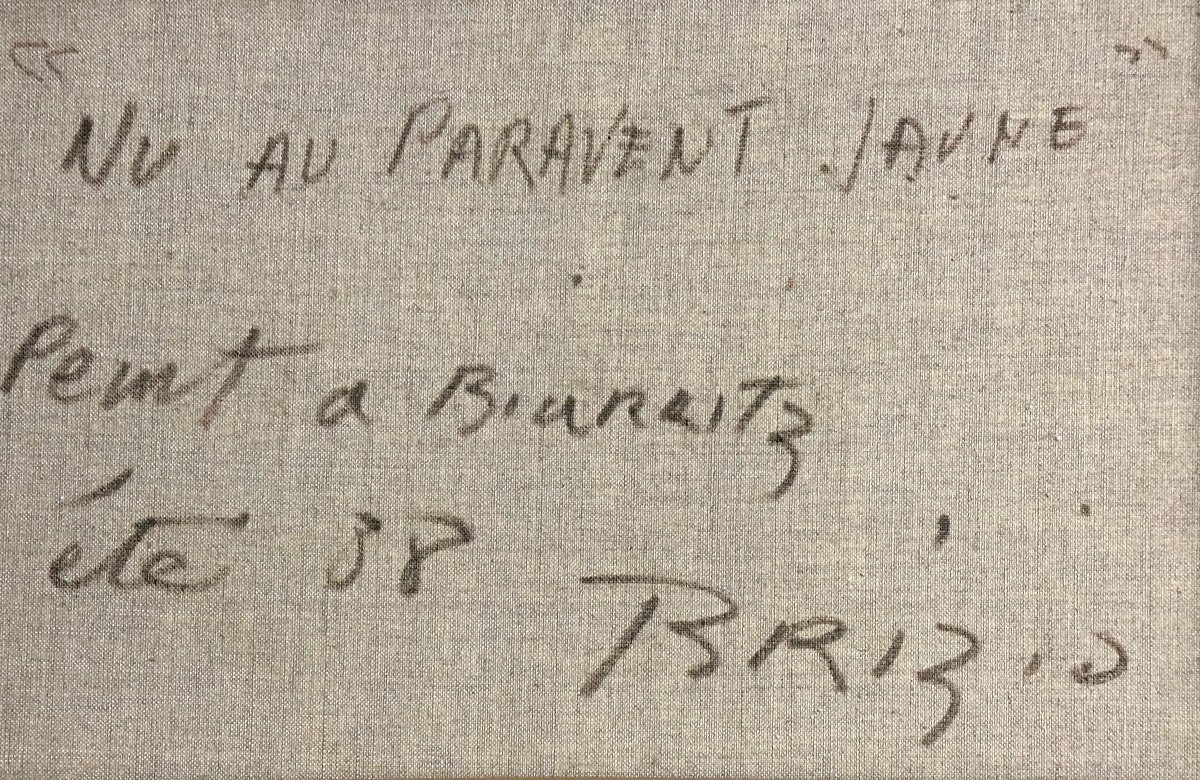 « NU AU PARAVENT JAUNE »
Peint a Biarritz
été 98
BRIZIO